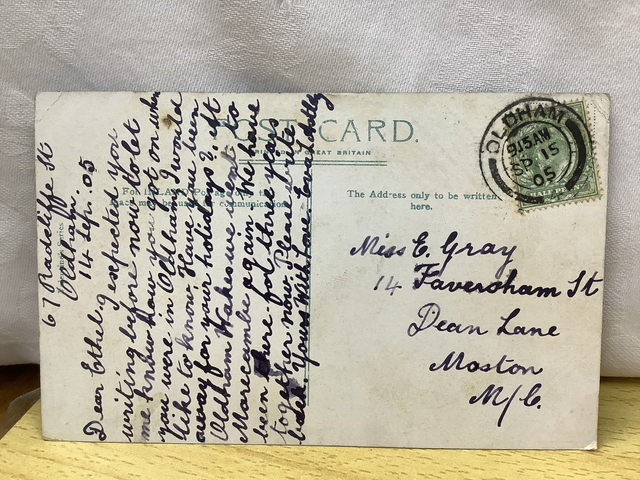 POST CARD.
PRINTED IN GREAT BRITAIN
For INLAND Postage only this
Space may be used for communication.
The Address only to be written
here.
OLDHAM
9.15AM
SP 15
05
Miss E. Gray
14 Faversham St
Dean Lane
Moston
M/C.
67 Radcliffe St
Oldham.
14 Sep. 05
Dear Ethel, I expected you
writing before now, to let
me know how you got on when
you were in Oldham, I would
like to know. Have you been
away for your holidays?, at
Oldham Wakes we went to
Morecambe again. We have
been there for three years
together now. Please write
back. Yours With Love